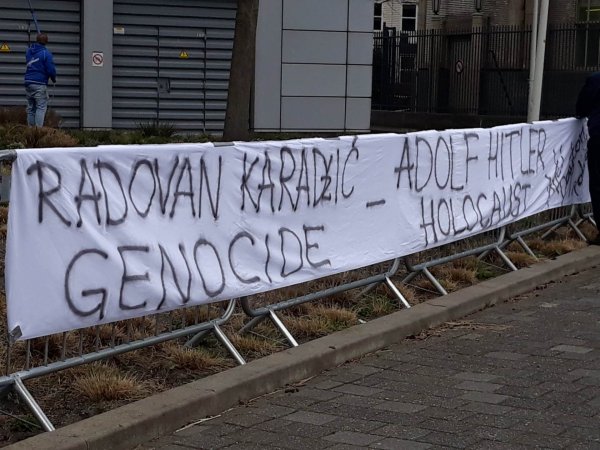 RADOVAN KARADŽIĆ – ADOLF HITLER
GENOCIDE HOLOCAUST